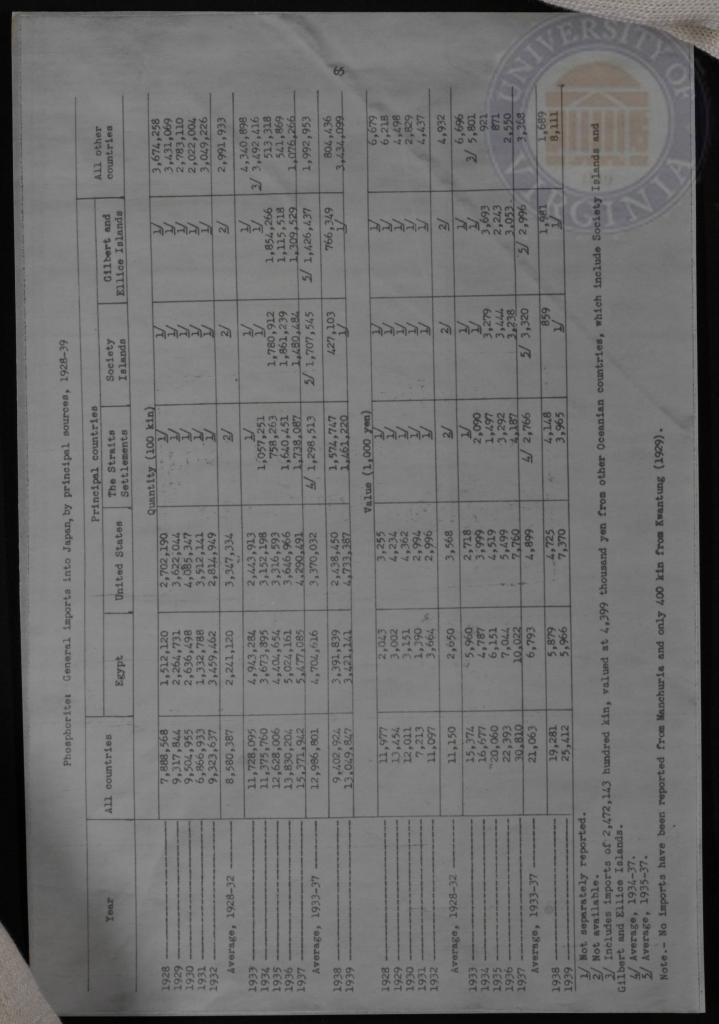 65
Phosphorite: General imports into Japan, by principal sources, 1928-39
Principal countries
Year All countries Egypt United States The Straits Settlements Society Islands Gilbert and Ellice Islands All other countries
Quantity (100 kin)
1928 7,888,568 1,512,120 2,702,190 1/ 1/ 1/ 3,674,258
1929 9,317,844 2,264,731 3,622,044 1/ 1/ 1/ 3,431,069
1930 9,504,955 2,636,498 4,085,347 1/ 1/ 1/ 2,783,110
1931 6,866,933 1,332,788 3,512,141 1/ 1/ 1/ 2,022,004
1932 9,323,637 3,459,462 2,814,949 1/ 1/ 1/ 3,049,226
Average, 1928-32 8,580,387 2,241,120 3,347,334 2/ 2/ 2/ 2,991,933
1933 11,728,095 4,943,284 2,443,913 1/ 1/ 1/ 4,340,898
1934 11,375,760 3,673,895 3,152,198 1,057,251 1/ 1/ 3/ 3,492,416
1935 12,628,006 4,404,654 3,316,593 758,263 1,780,912 1,854,266 513,318
1936 13,830,204 5,024,161 3,646,966 1,640,451 1,861,239 1,115,518 541,869
1937 15,371,942 5,477,085 4,290,491 1,738,087 1,480,484 1,309,529 1,076,266
Average, 1933-37 12,986,801 4,704,616 3,370,032 4/ 1,298,513 5/ 1,707,545 5/ 1,426,437 1,992,953
1938 9,402,924 3,391,839 2,438,450 1,574,747 427,103 766,349 804,436
1939 13,049,847 3,421,141 4,733,387 1,461,220 1/ 1/ 3,434,099
Value (1,000 yen)
1928 11,977 2,043 3,255 1/ 1/ 1/ 6,679
1929 13,454 3,002 4,234 1/ 1/ 1/ 6,218
1930 12,011 3,151 4,362 1/ 1/ 1/ 4,498
1931 7,213 1,390 2,994 1/ 1/ 1/ 2,829
1932 11,097 3,664 2,996 1/ 1/ 1/ 4,437
Average, 1928-32 11,150 2,650 3,568 2/ 2/ 2/ 4,932
1933 15,374 5,960 2,718 1/ 1/ 1/ 6,696
1934 16,677 4,787 3,999 2,090 1/ 1/ 3/ 5,801
1935 20,060 6,151 4,519 1,497 3,279 3,693 921
1936 22,393 7,044 5,499 3,292 3,444 2,243 871
1937 30,810 10,022 7,760 4,187 3,238 3,053 2,550
Average, 1933-37 21,063 6,793 4,899 4/ 2,766 5/ 3,320 5/ 2,996 3,368
1938 19,281 5,879 4,725 4,148 859 1,981 1,689
1939 25,412 5,966 7,370 3,965 1/ 1/ 8,111
1/ Not separately reported.
2/ Not available.
3/ Includes imports of 2,472,143 hundred kin, valued at 4,399 thousand yen from other Oceanian countries, which include Society Islands and
Gilbert and Ellice Islands.
4/ Average, 1934-37.
5/ Average, 1935-37.
Note.- No imports have been reported from Manchuria and only 400 kin from Kwantung (1929).
UNIVERSITY OF VIRGINIA